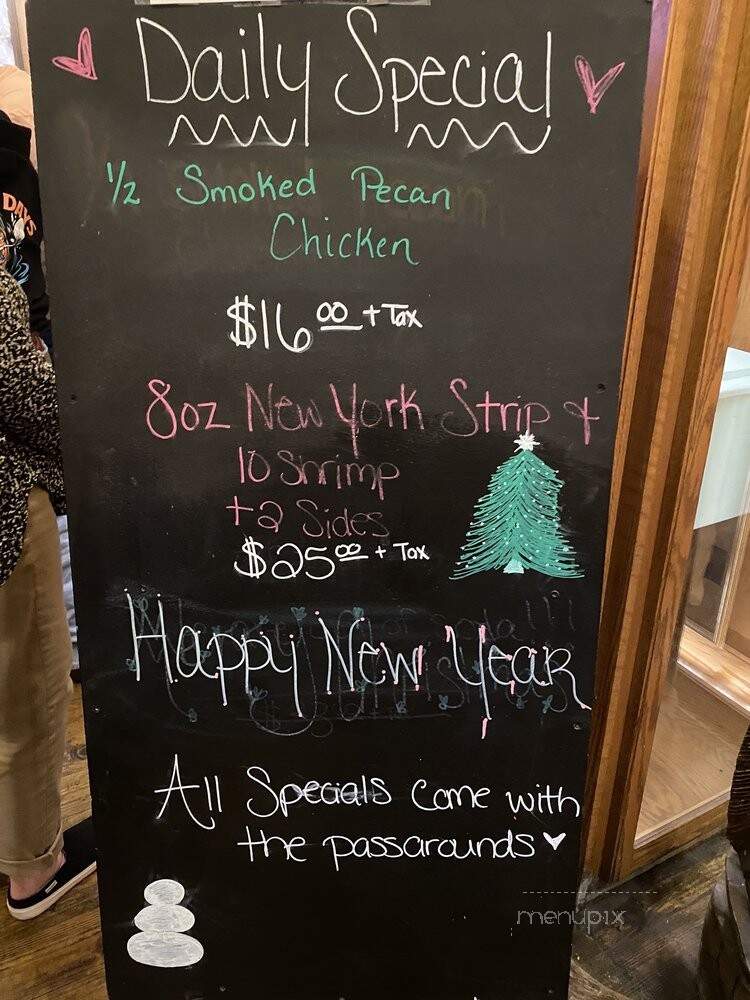 Daily Special
1/2 Smoked Pecan
Chicken
$16.00 + Tax
8oz New York Strip +
10 Shrimp
+2 Sides
$25.00 + Tax
Happy New Year
All Specials come with
the passarounds
menupix
DAYS